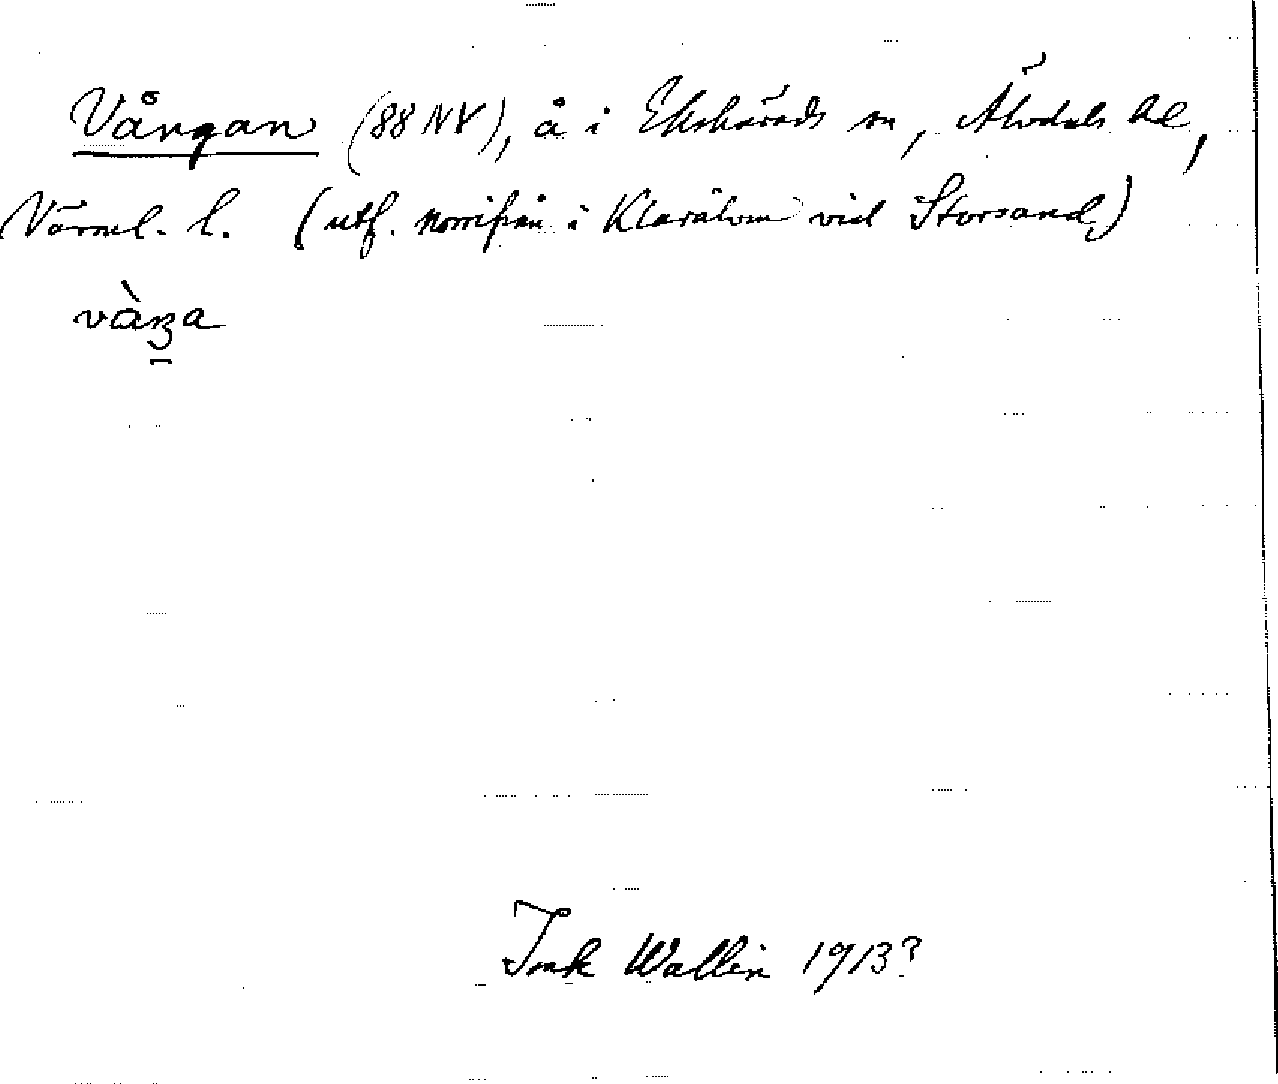 Vångan (88 NV), å i Ekshärads sn, Älvdals hd,
Värml. l. (utf. norrifrån i Klarälven vid Storsand)
vàŋa
Ink Wallin 1913?